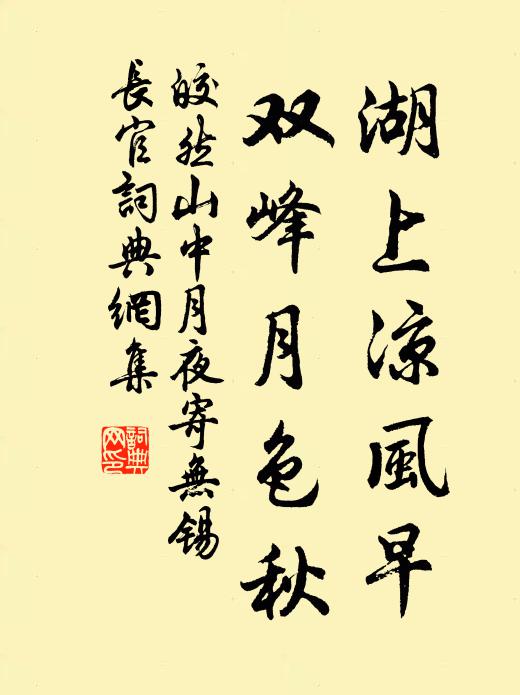 湖上凉風早
双峰月色秋
皎然山中月夜寄無锡
長官詞典網集
詞典网印